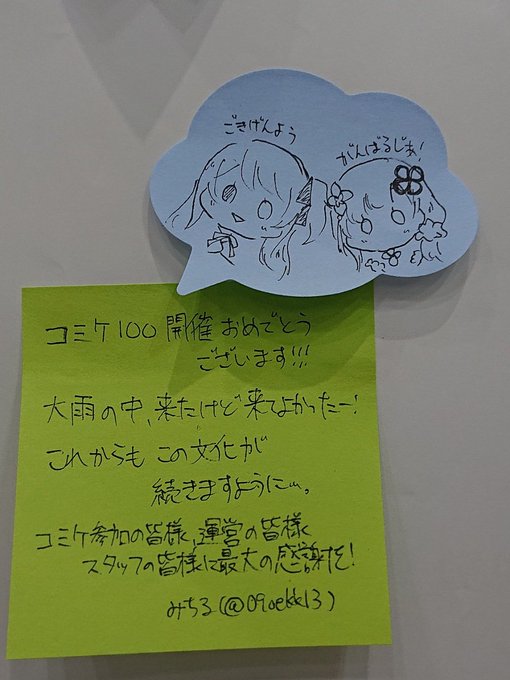 ごきげんよう
がんばるじぁ!
コミケ100 開催 おめでとう
ございます!!!
大雨の中、来たけど来てよかったー!
これからも この文化が
続きますように
コミケ参加の皆様、運営の皆様
スタッフの皆様に最大の感謝を!
みちる(@09oekk13)